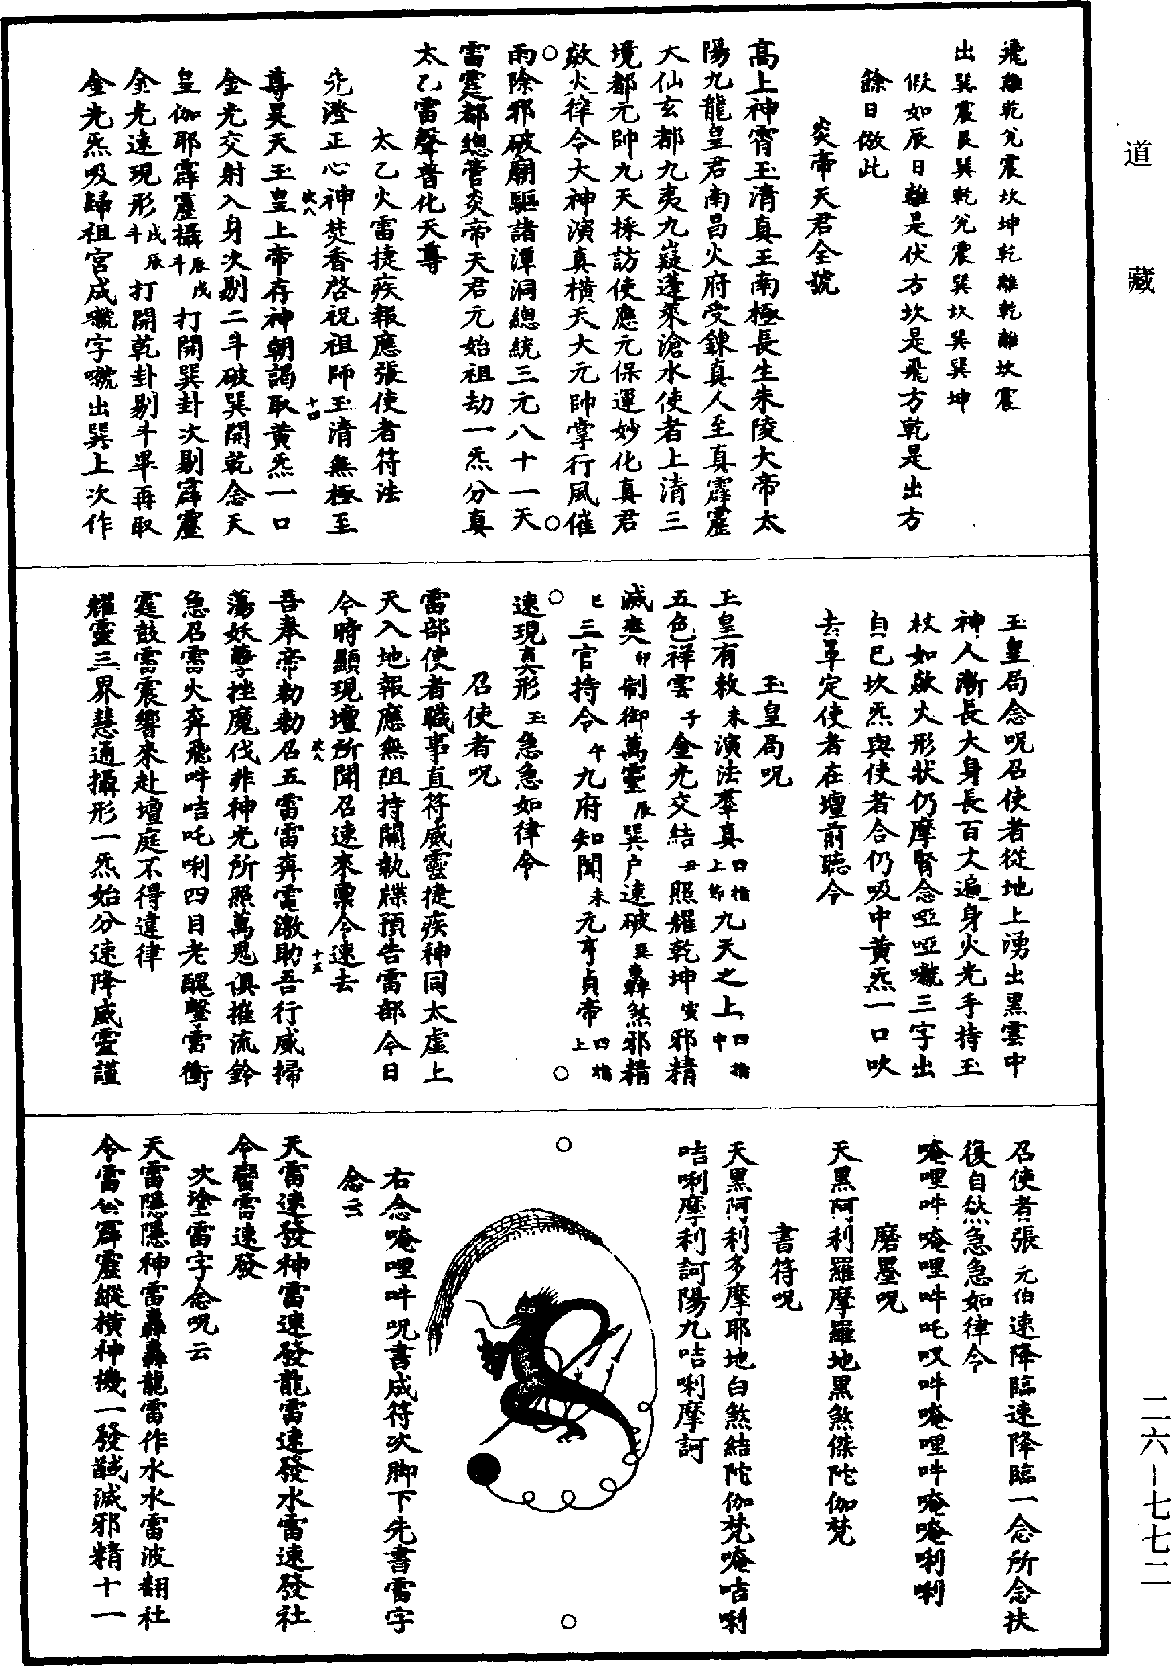 道藏
飛離乾兊震坎坤乾離乾離坎震
出巽震艮巽乾兊震巽坎巽巽坤
假如辰日離是伏方坎是飛方乾是出方
餘日倣此
炎帝天君全號
高上神霄玉清真王南極長生朱陵大帝太
陽九龍皇君南昌火府受鍊真人至真霹靂
大仙玄都九夷九嶷蓬萊滄水使者上清三
境都元帥九天採訪使應元保運妙化真君
歘火律令大神演真橫天大元帥掌行風催
雨除邪破廟驅諸潭洞總統三元八十一天
雷霆都總管炎帝天君元始祖劫一炁分真
太乙雷聲普化天尊
太乙火雷捷疾報應張使者符法
先澄正心神焚香啓祝祖師玉清無極至
尊昊天玉皇上帝存神朝謁取黃炁一口
金光交射入身次剔二斗破巽開乾念天
皇伽耶霹靂攝斗辰戌打開巽卦次剔霹靂
金光速現形斗戌辰打開乾卦剔斗畢再取
金光炁吸歸祖宮成㘕字㘕出巽上次作
玉皇局念呪召使者從地上湧出黑雲中
神人漸長大身長百丈遍身火光手持玉
杖如歘火形狀仍摩腎念啞啞㘕三字出
自己坎炁與使者合仍吸中黃炁一口吹
去罩定使者在壇前聽令
玉皇局呪
玉皇有敕未演法羣真四指上節九天之上四指中
五色祥雲子金光交結丑照耀乾坤寅邪精
滅爽卯制御萬靈辰巽户速破巽轟煞邪精
巳三官持令午九府知聞未元亨貞帝四指上
速現真形玉急急如律令
召使者呪
雷部使者職事直符威靈捷疾神同太虛上
天入地報應無阻持關執牒預告雷部今日
今時顯現壇所聞召速來禀令速去
吾奉帝勑勑召五雷雷奔電激助吾行威掃
蕩妖孽挫魔伐非神光所照萬鬼俱摧流鈴
急召雷火奔飛吽咭吒唎四目老醜鑿雷衝
霆鼓雷震響來赴壇庭不得違律
耀靈三界慧通攝形一炁始分速降威靈謹
召使者張元伯速降臨速降臨一念所念扶
復自然急急如律令
唵哩吽唵哩吽吒呟吽唵哩吽唵唵唎唎
磨墨呪
天黑阿利羅摩羅地黑煞傑陀伽梵
書符呪
天黑阿利多摩耶地白煞結陀伽梵唵咭唎
咭唎摩利訶陽九咭唎摩訶
右念唵哩吽呪書成符次脚下先書雷字
念云
天雷速發神雷速發龍雷速發水雷速發社
令蠻雷速發
次塗雷字念呪云
天雷隱隱神雷轟轟龍雷作水水雷波翻社
令雷公霹靂縱橫神機一發馘滅邪精十一
二六—七七二